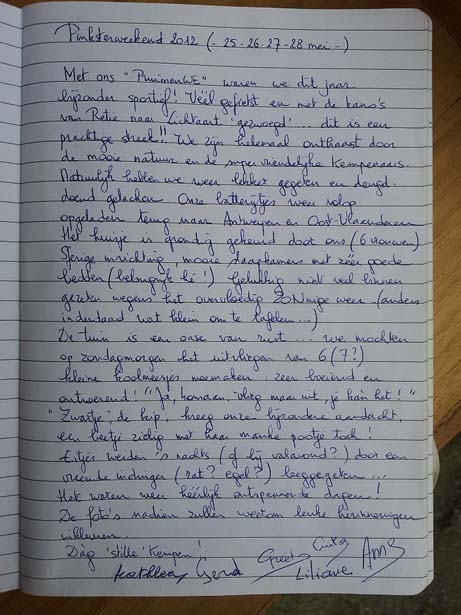 Pinksterweekend 2012 (- 25-26-27-28 mei -)
Met ons "PruimenWE" waren we dit jaar
bijzonder sportief! Véél gefietst en met de kano's
van Retie naar Lichtaart 'gezwoegd'... dit is een
prachtige streek!! We zijn helemaal onthaast door
de mooie natuur en de supervriendelijke Kempenaars.
Natuurlijk hebben we weer lekker gegeten en deugd-
doend gelachen. Onze batterijtjes weer volop
opgeladen terug naar Antwerpen en Oost-Vlaanderen
Het huisje is grondig gekeurd door ons (6 vrouwen)
Sjerige inrichting, mooie slaapkamers met zéér goede
bedden (belangrijk hé!) Gelukkig niet veel binnen
gezeten wegens het overvloedig ZONnige weer (anders
inderdaad wat klein om te tafelen...)
De tuin is een oase van rust... we mochten
op zondagmorgen het uitvliegen van 6 (7?)
kleine koolmeesjes meemaken, zeer boeiend en
ontroerend! "Ja, komaan, vlieg maar uit, je kan het!"
"Zwartje", de kip, kreeg onze bijzondere aandacht,
een beetje zielig met haar manke pootje toch!
Eitjes werden 's nachts (of bij valavond?) door een
vreemde indringer (rat? egel?) leeggegeten...
Het waren weer héérlijk ontspannende dagen!
De foto's nadien zullen weerom leuke herinneringen
inkleuren.
Dàg 'stille' Kempen!
Kathleen Gerd Greet Cinka Liliane Ann